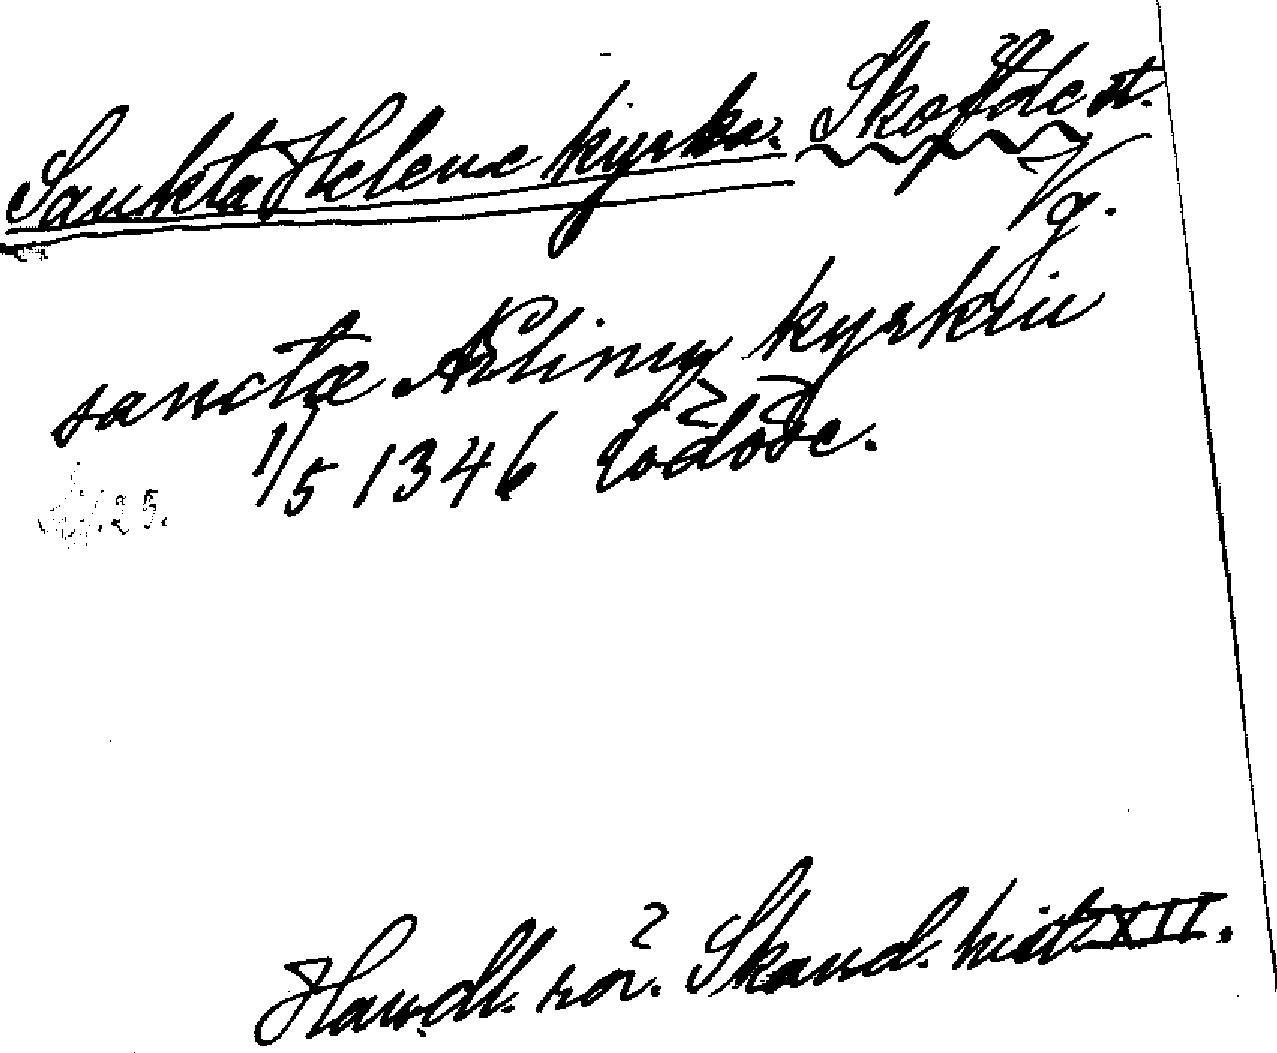 Sankta Helena kyrka. Skövde st.
Vg.
sanctæ Ælinny kyrkiu
1/5 1346 Lödöse.
125.
Handl. rör. Skand. hist. XII.